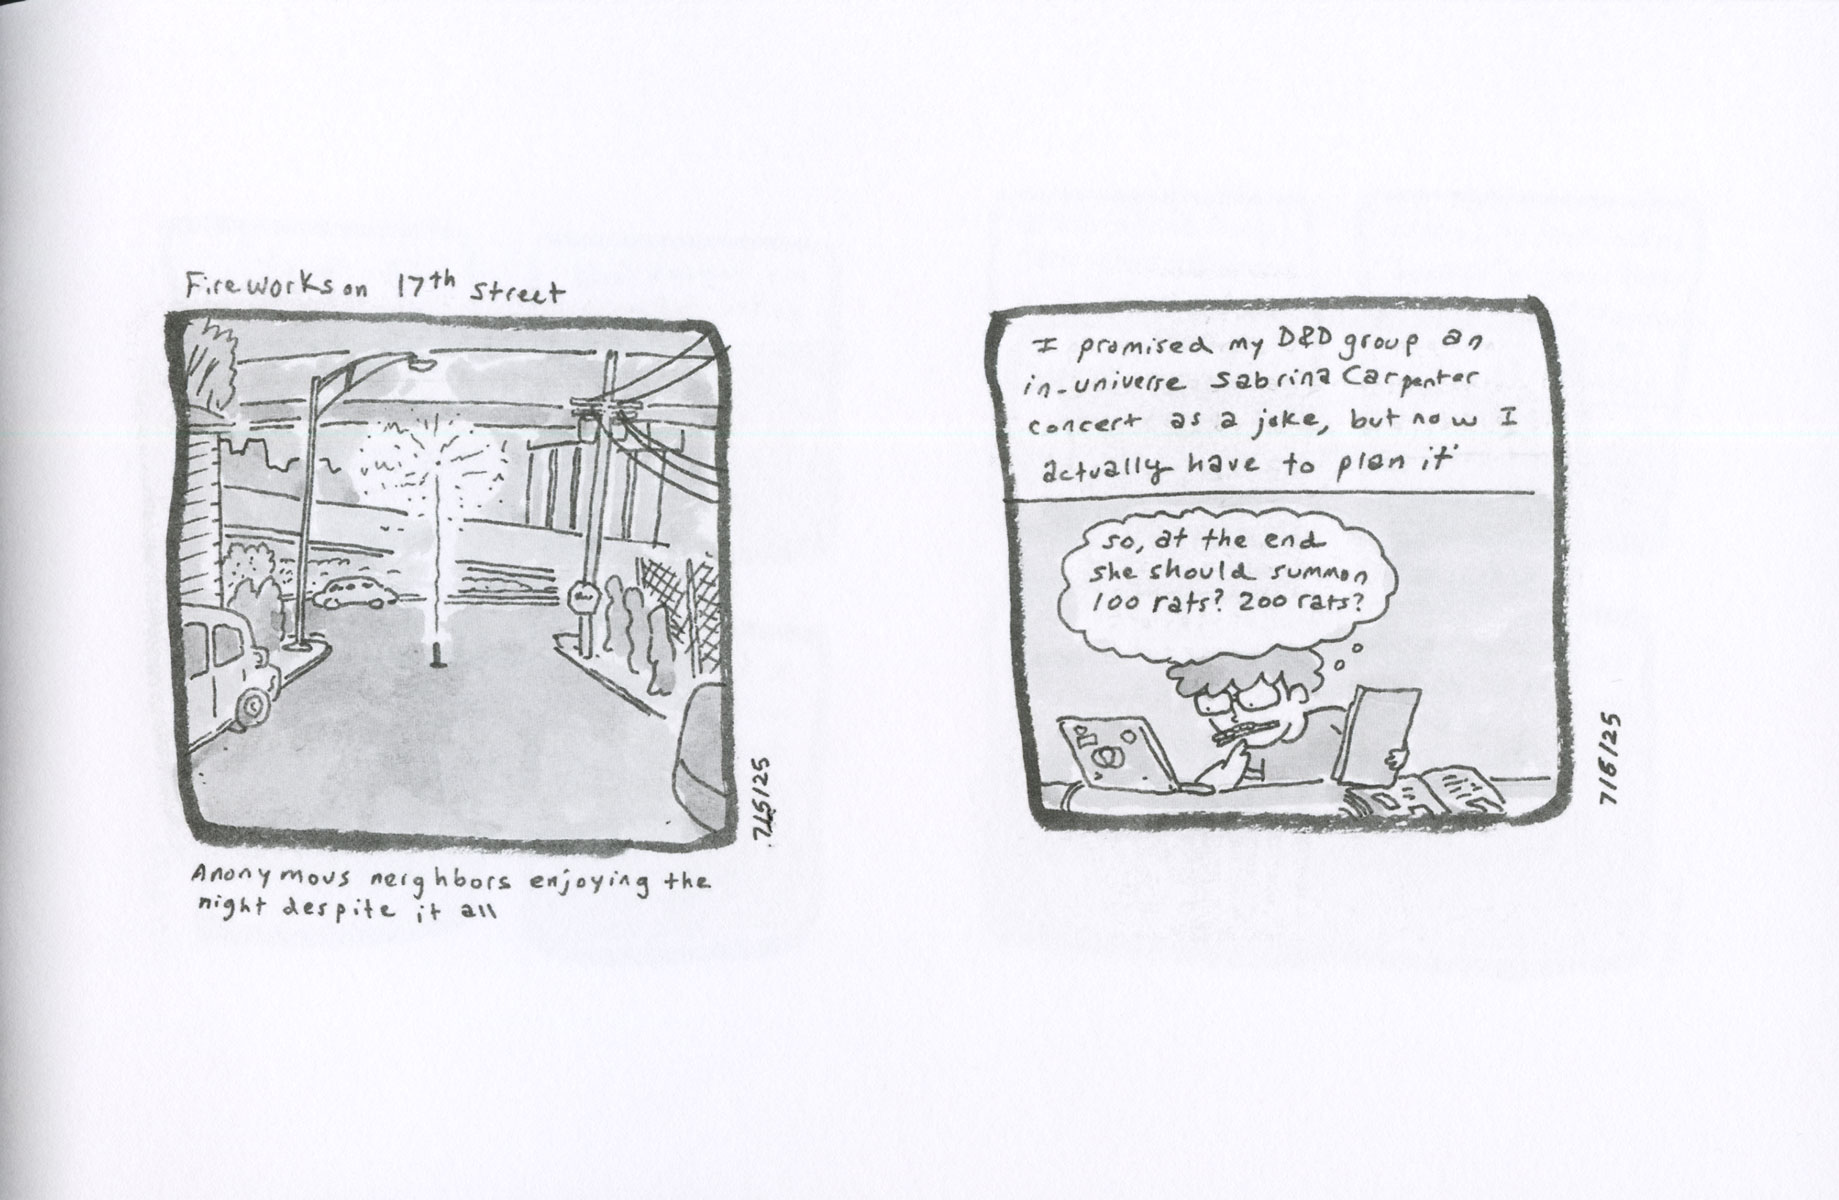 Fireworks on 17th street
7/5/25
Anonymous neighbors enjoying the
night despite it all
I promised my D&D group an
in-universe Sabrina Carpenter
concert as a joke, but now I
actually have to plan it
so, at the end
she should summon
100 rats? 200 rats?